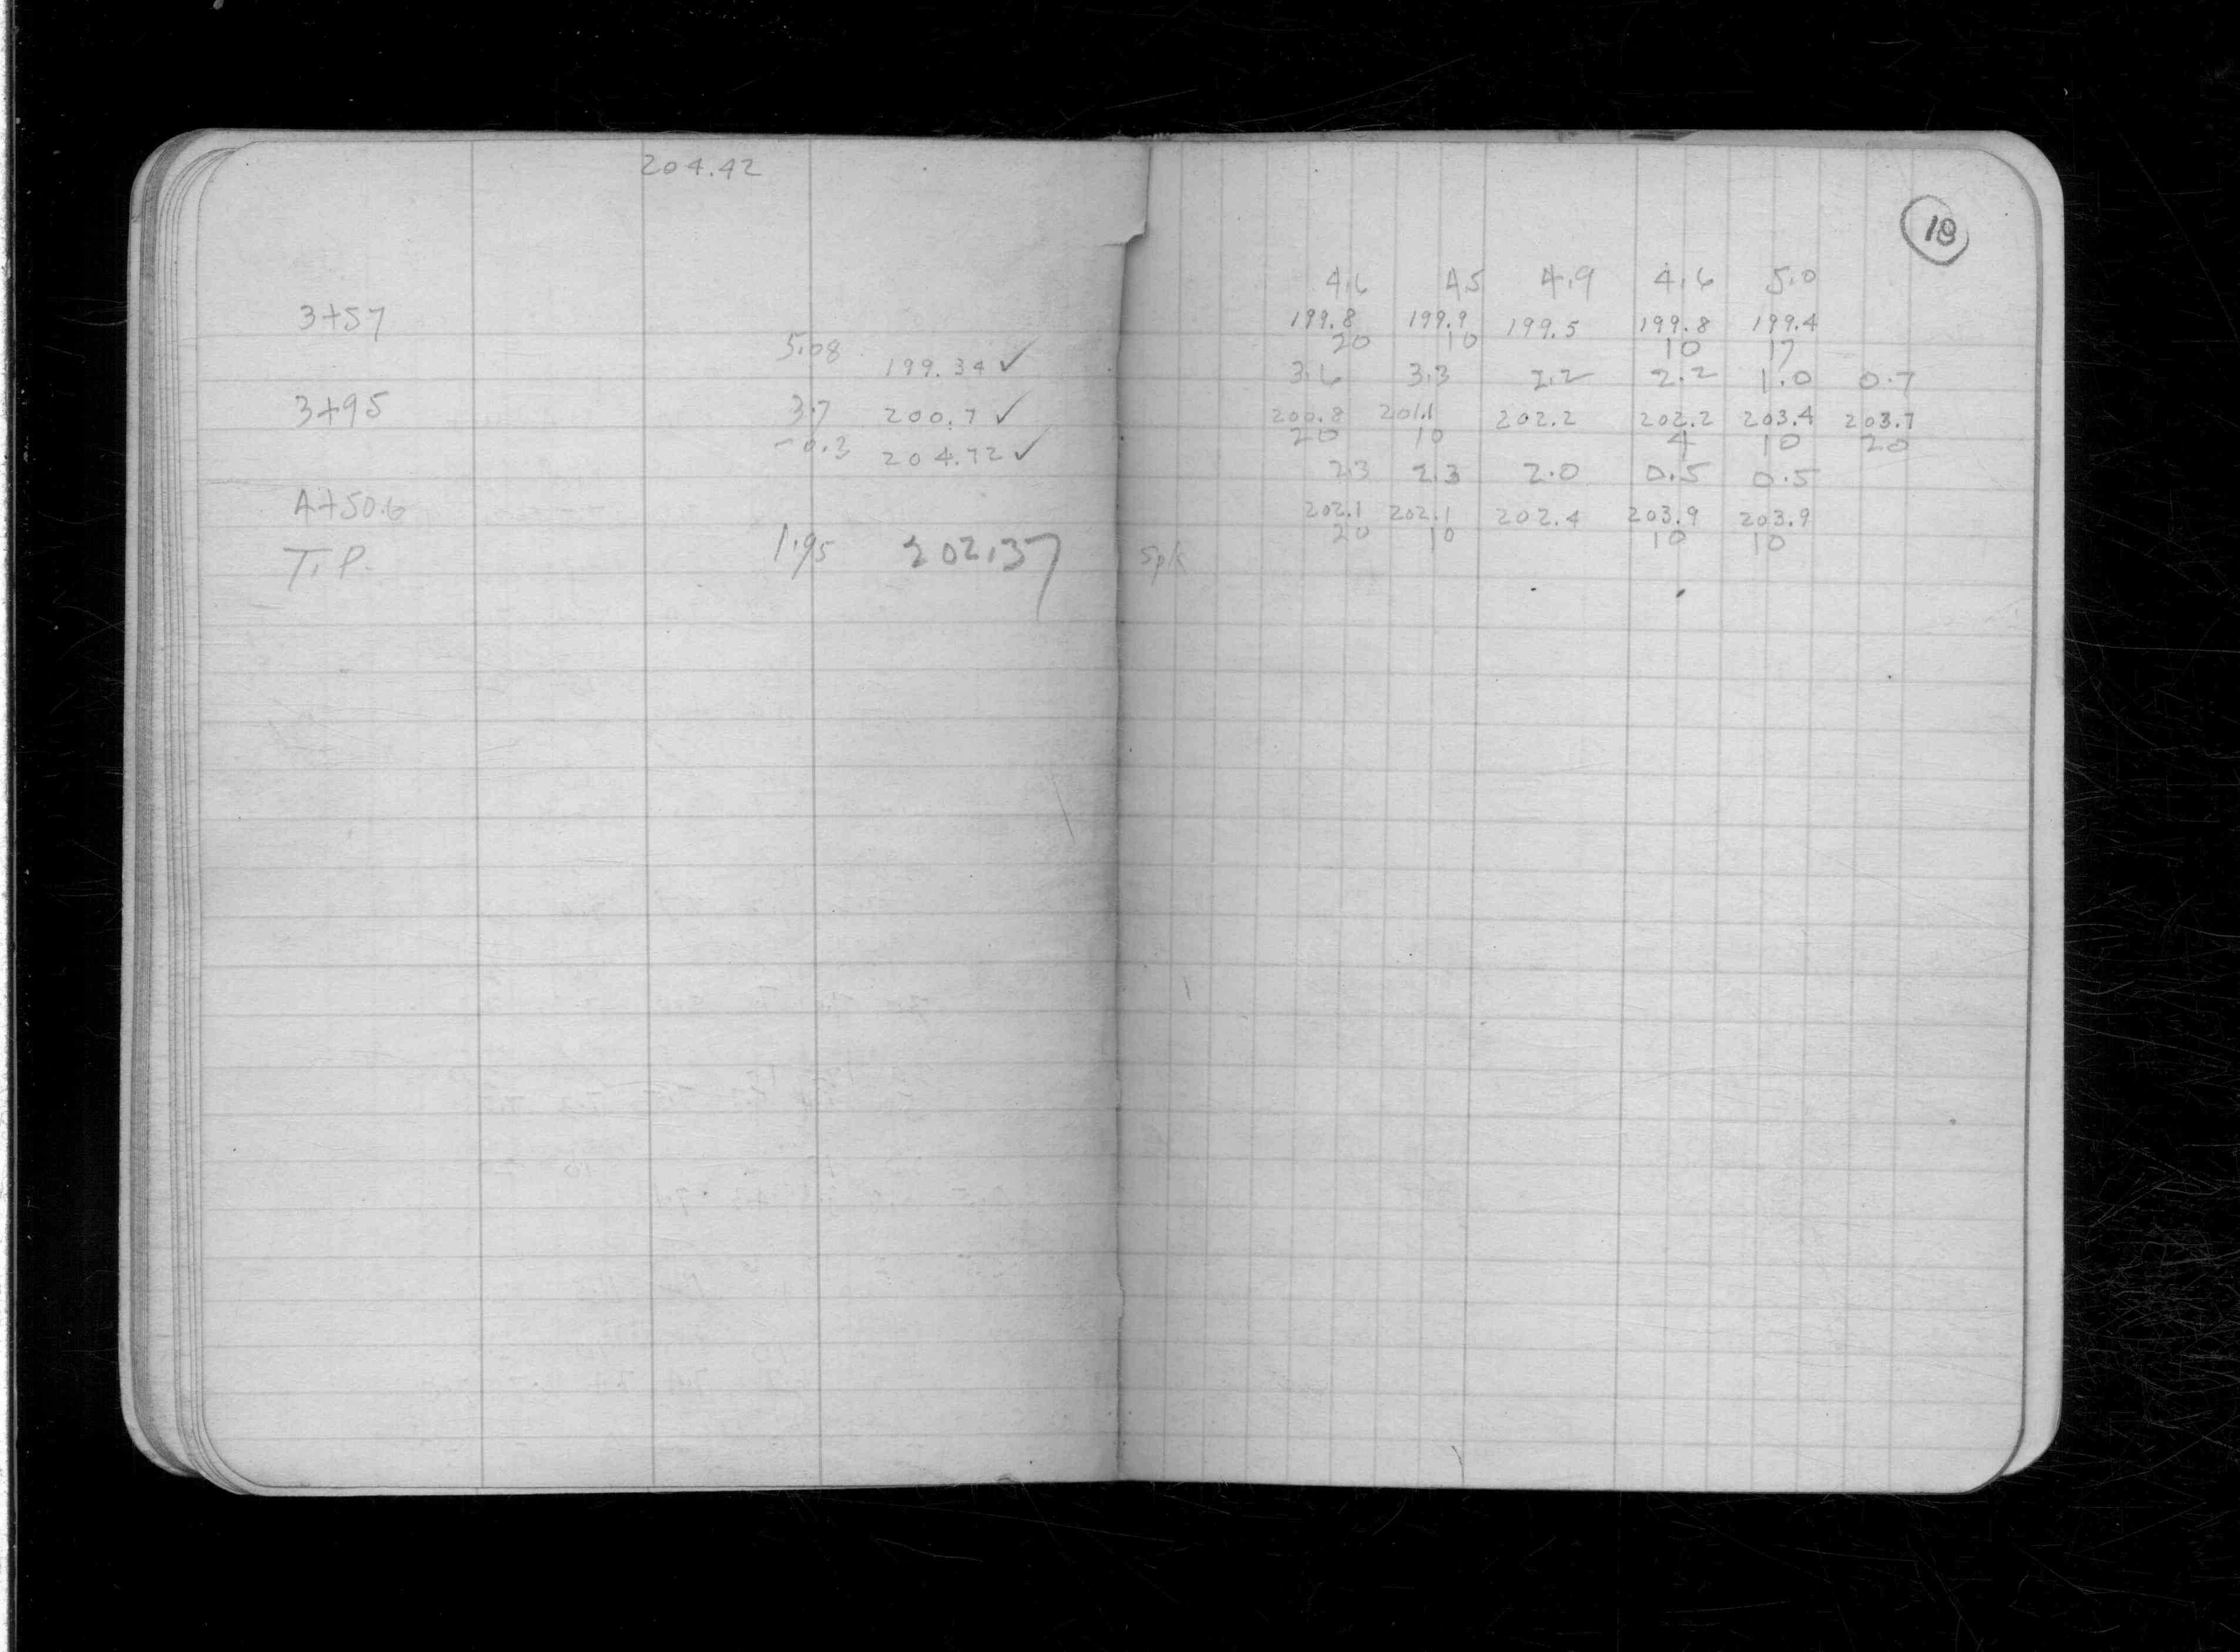 204.42
3+57
5.08 199.34 ✓
3+95 3.7 200.7 ✓
-0.3 204.72 ✓
4+50.6
T.P. 1.95 202.37
18
4.6 4.5 4.9 4.6 5.0
199.8 199.9 199.5 199.8 199.4
20 10 10 17
3.6 3.3 2.2 2.2 1.0 0.7
200.8 201.1 202.2 202.2 203.4 203.7
20 10 4 10 20
2.3 2.3 2.0 0.5 0.5
202.1 202.1 202.4 203.9 203.9
20 10 10 10
spk